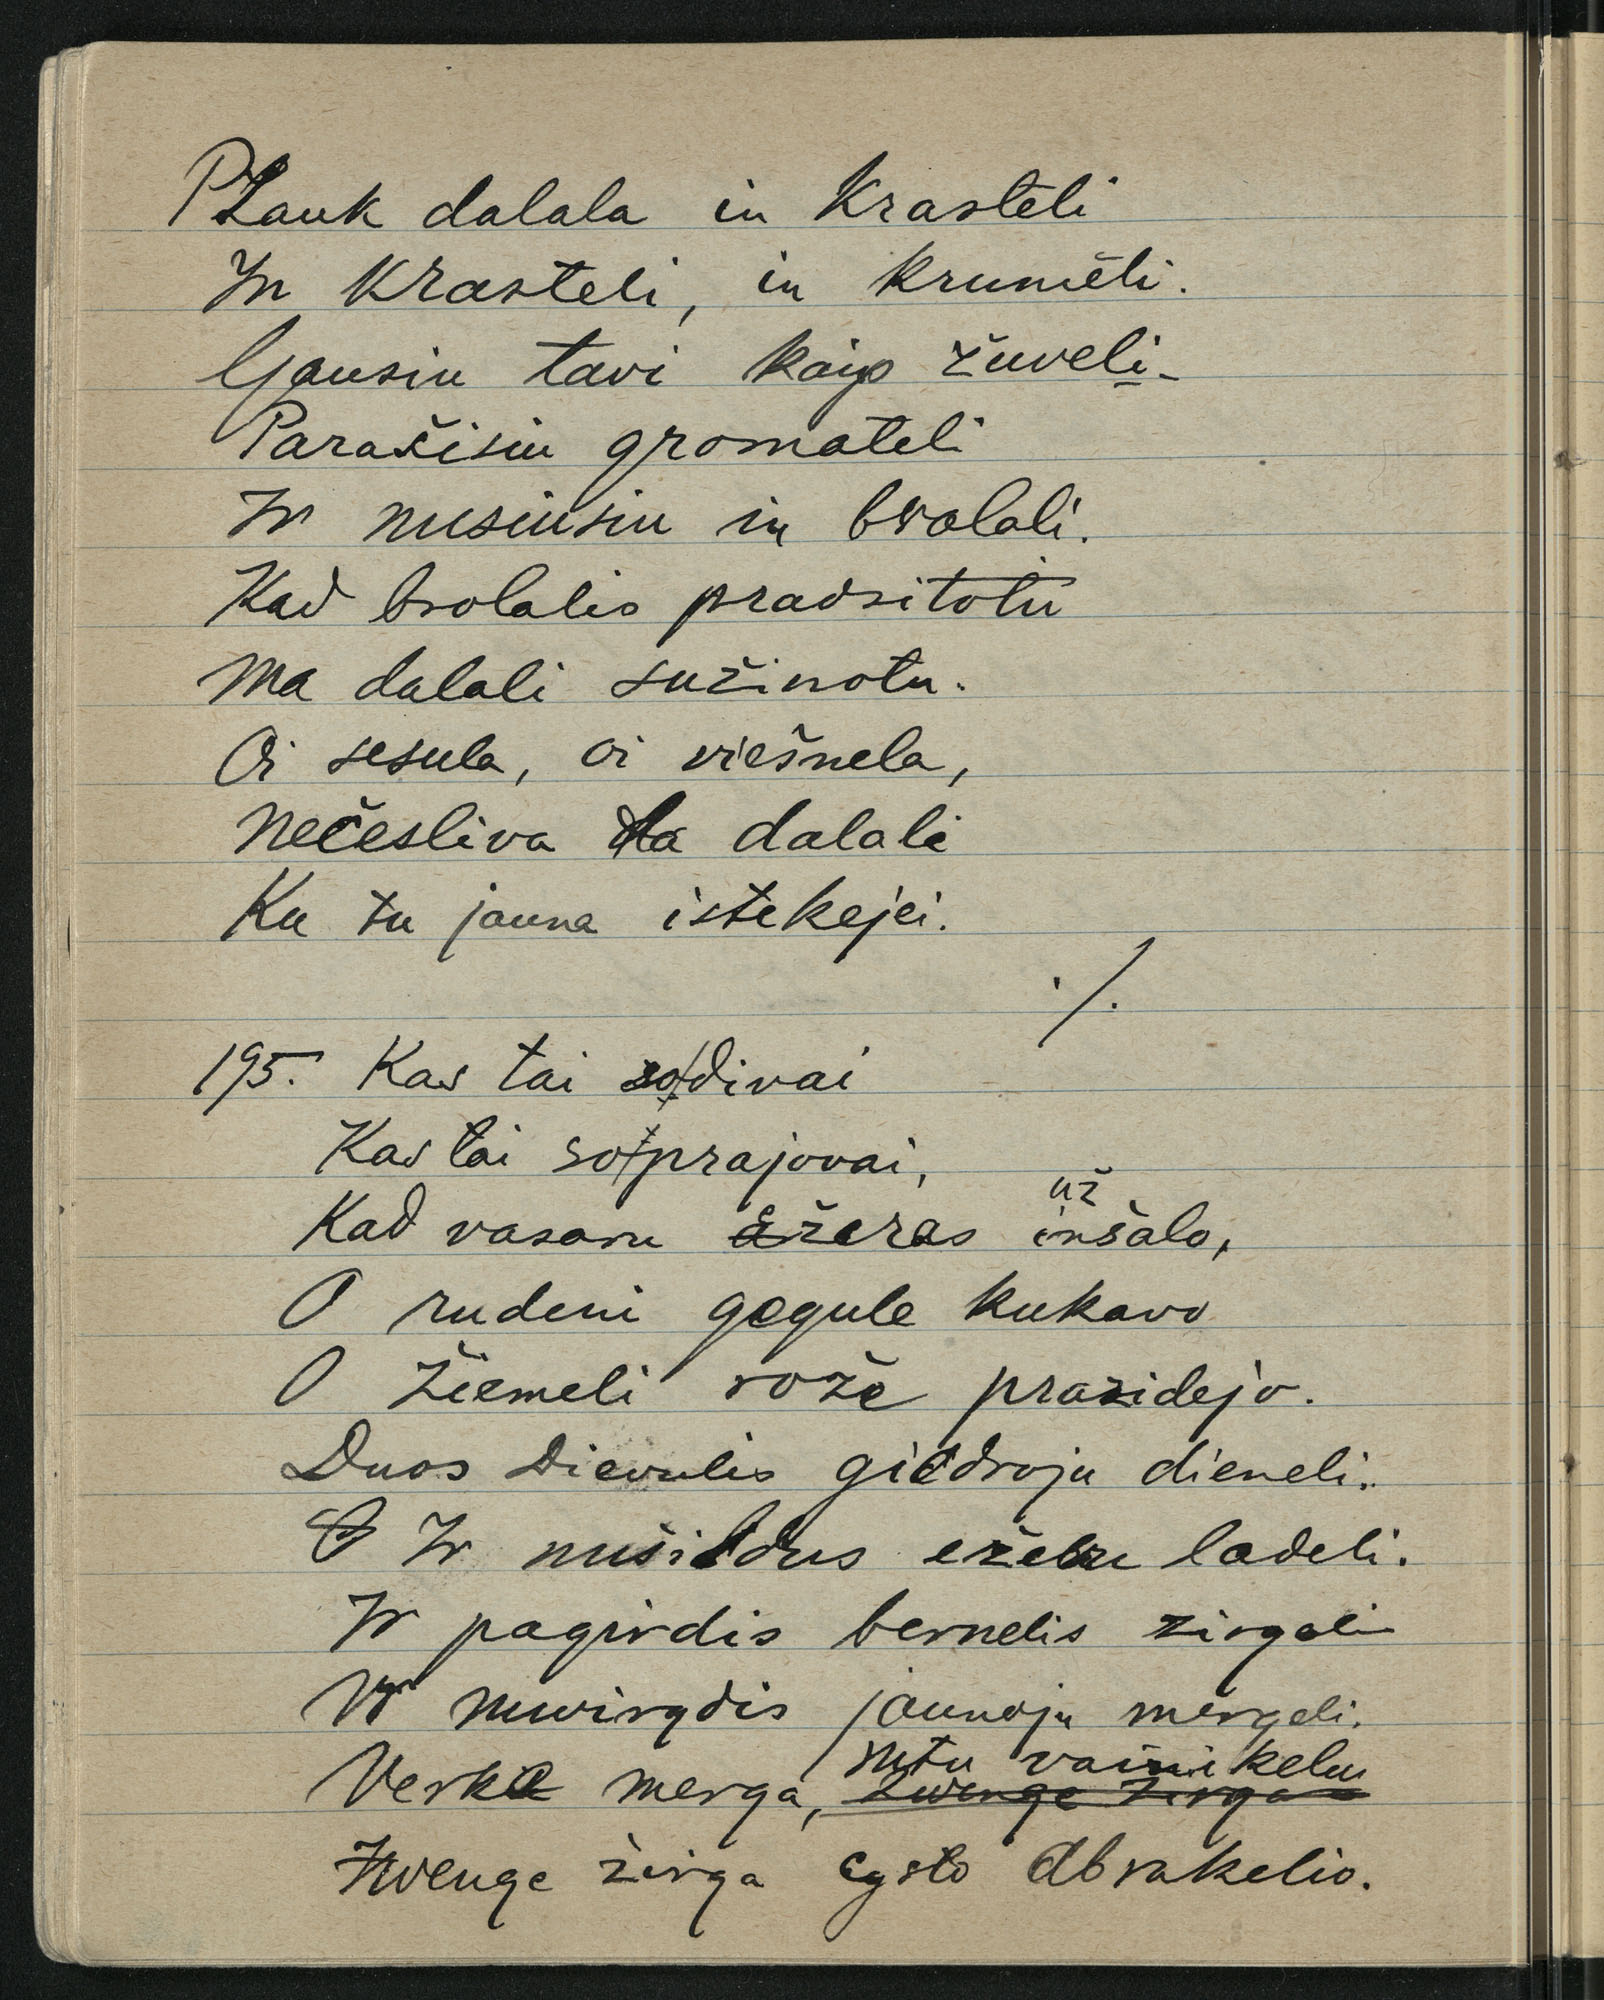 PLauk dalala in Krasteli
In Krasteli, in krumėli.
Gausiu tavi kaip žuveli.
Parašisiu gromateli
Ir nusiusiu in brolali.
Kad brolalis pradsitotu
Ma dalali sužinotu.
Oi sesula, oi viešnela,
Nečesliva ta dalali
Ku tu jauna istekejei.
./.
195. Kas tai so divai
Kas tai so prajovai,
Kad vasaru ežeras užšalo,
O rudeni gegule kukavo
O Žiemeli rože prazidejo.
Duos Dievulis giedroju dieneli.
Ir nušildus ežeru ladeli.
Ir pagirdis bernelis zirgeli
Ir nuvirgdis jaunoju mergeli.
Verke merga, rutu vainikelu
Zwenge žirga cysto abrakelio.